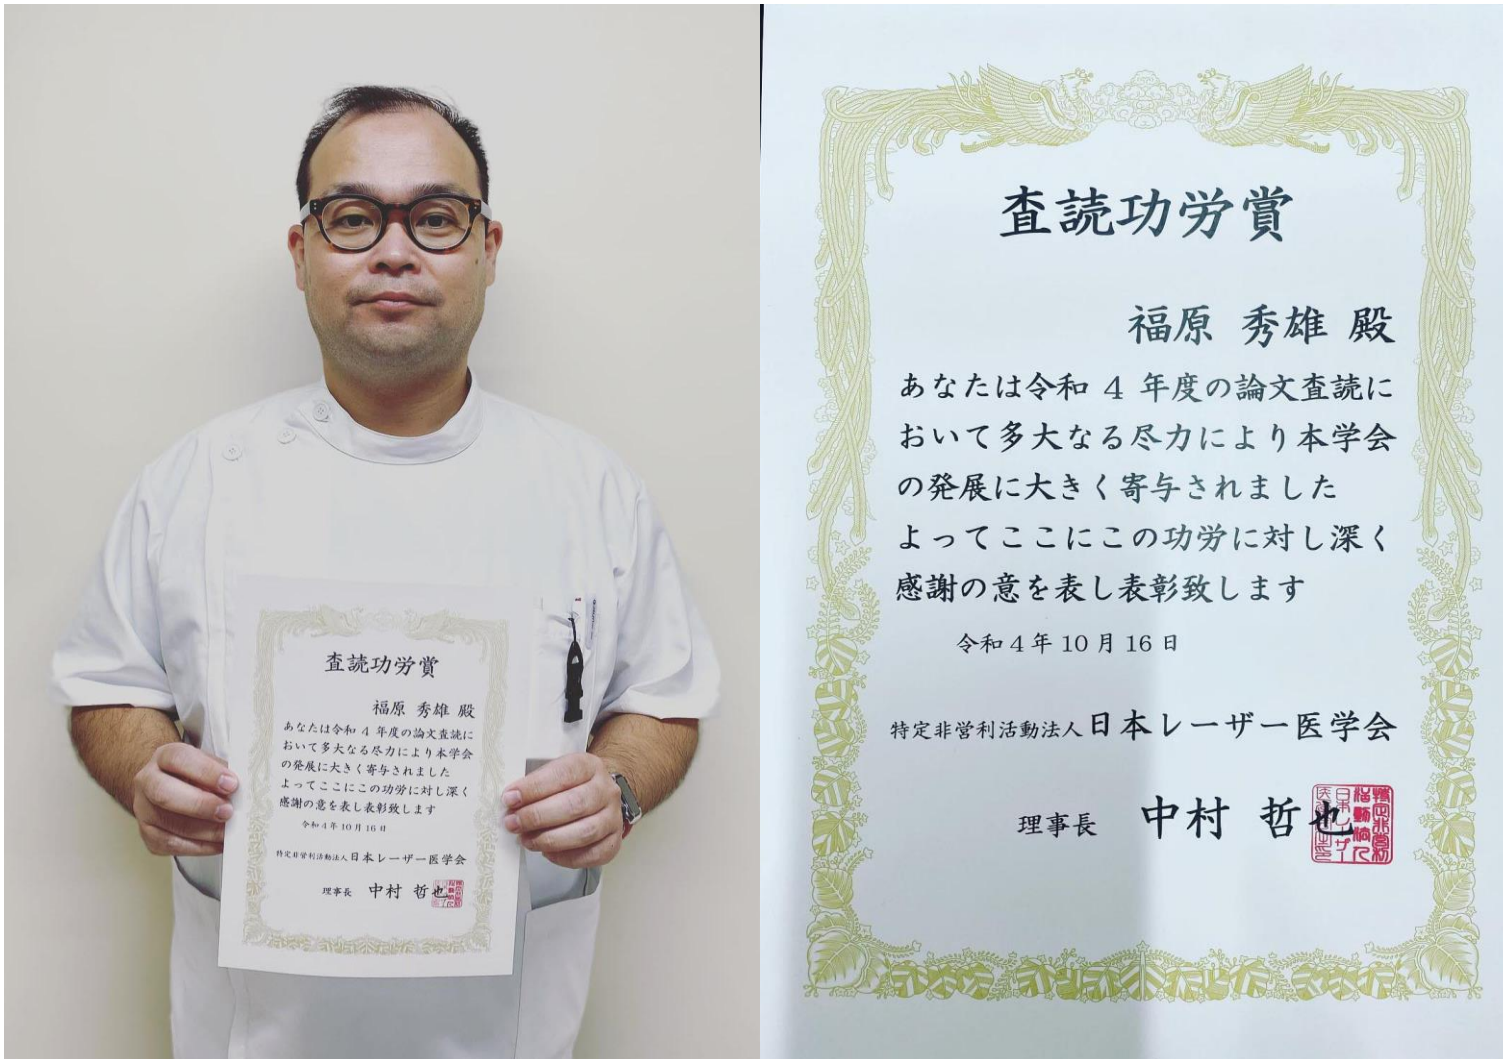 査読功労賞
福原 秀雄 殿
あなたは令和 4 年度の論文査読に
おいて多大なる尽力により本学会
の発展に大きく寄与されました
よってここにこの功労に対し深く
感謝の意を表し表彰致します
令和 4 年 10 月 16 日
特定非営利活動法人日本レーザー医学会
理事長 中村 哲也
査読功労賞
福原 秀雄 殿
あなたは令和 4 年度の論文査読に
おいて多大なる尽力により本学会
の発展に大きく寄与されました
よってここにこの功労に対し深く
感謝の意を表し表彰致します
令和 4 年 10 月 16 日
特定非営利活動法人日本レーザー医学会
理事長 中村 哲也